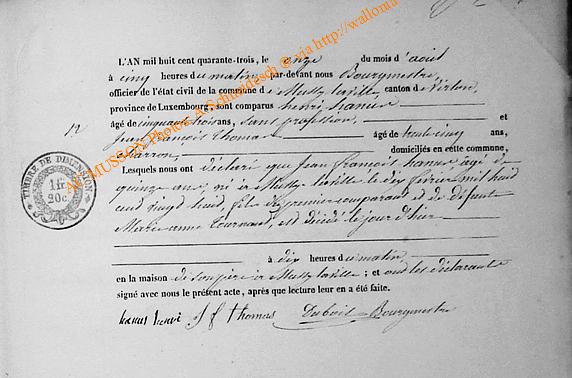 L'AN mil huit cent quarante-trois, le onze du mois d'août
à cinq heures du matin par-devant nous Bourgmestre,
officier de l'état civil de la commune de Mussy la ville canton de Virton,
province de Luxembourg, sont comparus henri hanus
âgé de cinquante trois ans, sans profession, et
12
Jean françois Thomas âgé de trente cinq ans,
charron, domiciliés en cette commune,
Lesquels nous ont déclaré que Jean françois hanus agé de
quinze ans, né à Mussy la ville le dix février mil huit
cent vingt huit, fils du premier comparant et de défunte
Marie anne Tournaud, est décédé le jour d'hier
à dix heures du matin,
en la maison de son père à Mussy la ville; et ont les déclarants
signé avec nous le présent acte, après que lecture leur en a été faite.
hanus henri J f thomas Dubois Bourgmestre
TIMBRE DE DIMENSION
1 fr
20 c.
AC MUSSON Photos A. Schmidesch @ via http://wallonia